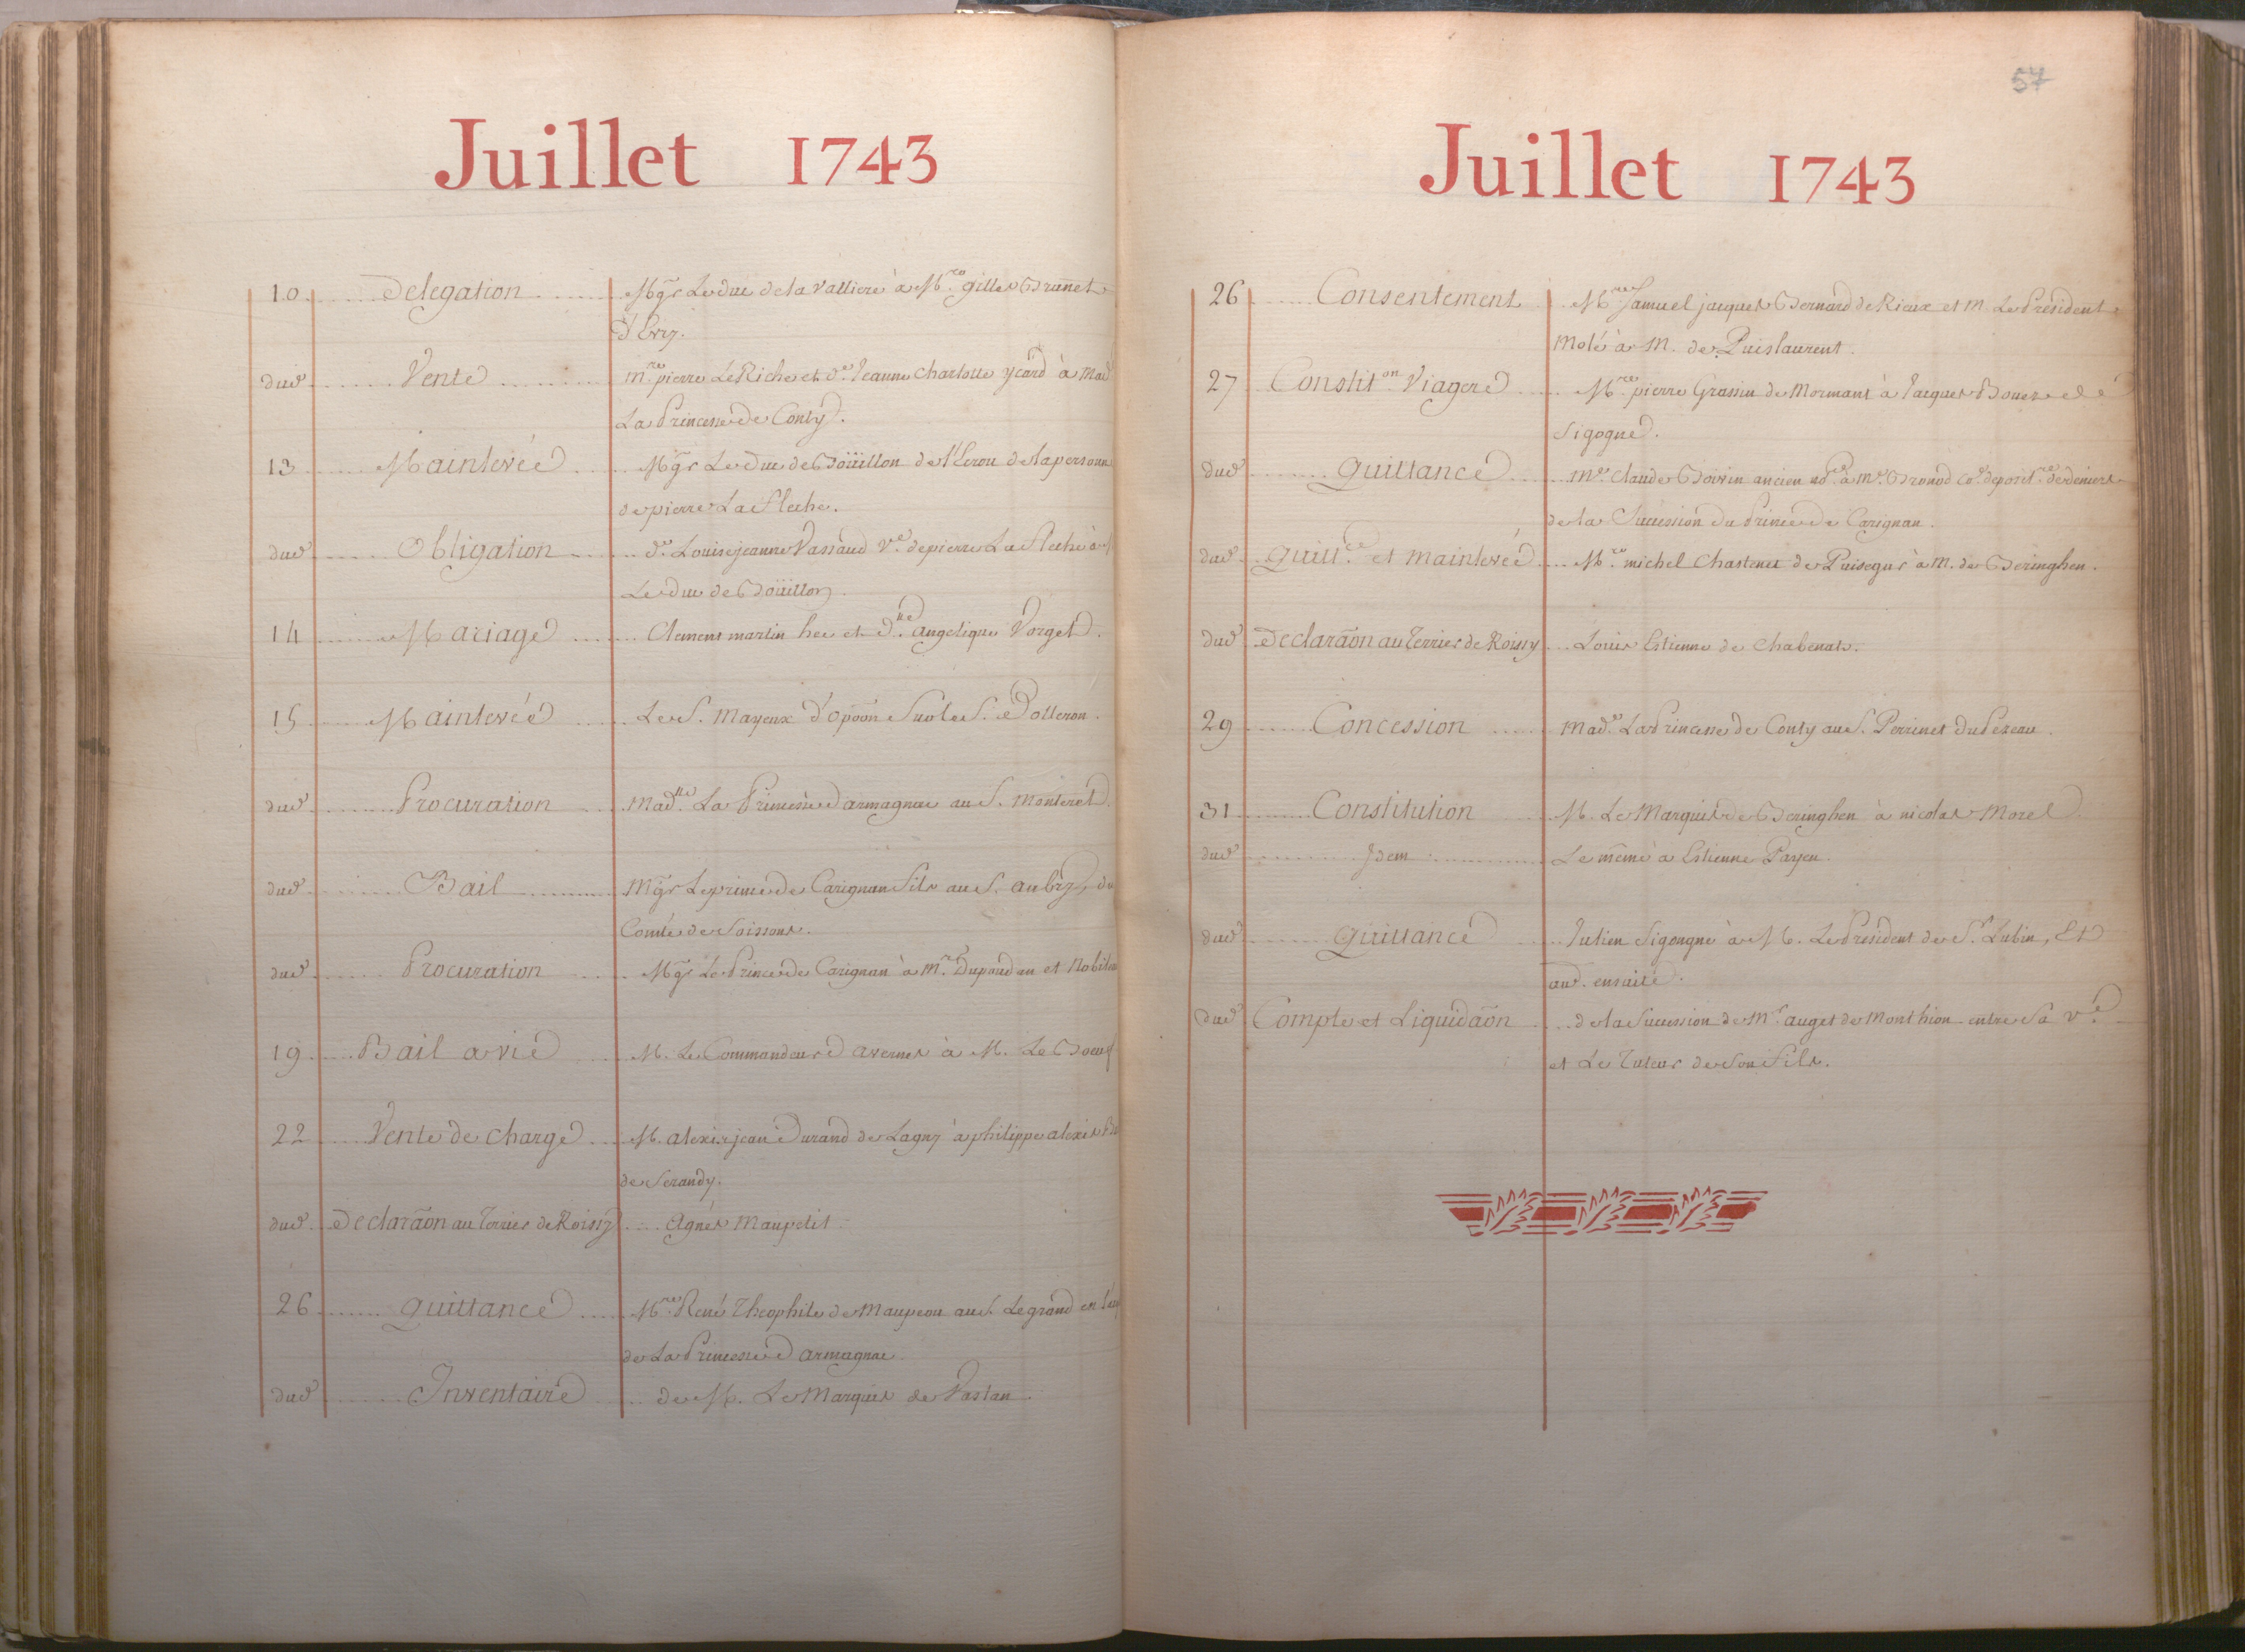 Juillet 1743
10 Delegation Mgr Le duc de la Valliere à Mre gilles Brunet
d'Evry.
dud Vente mre pierre Le Riche et de Jeanne Charlotte ycard à Made
La Princesse de Conty.
13 Mainlevée Mgr Le Duc de Boüillon de l'Ecrou de la personne
de pierre La fleche.
dud Obligation de Louise jeanne Vassaud ve de pierre La fleche à
Le duc de Boüillon.
14 Mariage Clement martin hee et dlle angelique Vorget.
15 Mainlevée Le S. Mayeux d'opoôn Sur le S. Dolleron.
dud Procuration madlle La Princesse d'armagnac au S. Monteret.
dud Bail Mgr Le prince de Carignan fils au S. aubry, du
Comté de Soissons.
dud Procuration Mgr Le Prince de Carignan à mrs Dupand au et Nobileau
19 Bail a vie M. Le Commandeur d'avernes à M. Le Boeuf
22 Vente de charge M. alexis jean Durand de Lagny à philippe alexis
de Serandy.
dud Declaraôn au Terrier de Roissy Agnés Maupetit.
26 Quittance Mre René Theophile de Maupeou au S. Le grand en l'acq
de La Princesse d'armagnac.
dud Inventaire de M. Le Marquis de Vastan.
57
Juillet 1743
26 Consentement Mre Samuel jacques Bernard de Rieux et m. Le Président
Molé à M. de Puislaurent.
27 Constiton Viagere Mre pierre Grassin de Mormant à Jacques Bouex de
Sigogne.
dud Quittance Me Claude Boivin ancien nore à Me Bronod Co. deposit.re de deniers
de la Succession du Prince de Carignan.
dud Quitt.ce et mainlevée Mre michel Chastenet de Puisegur à M. de Beringhen.
dud Declaraôn au Terrier de Roissy Louis Estienne de Chabenat.
29 Concession Made La Princesse de Conty au S. Perrinet du Pezeau.
31 Constitution M. Le Marquis de Beringhen à nicolas Morel
dud Idem Le même à Estienne Payen.
dud Quittance Julien Sigongne à M. Le Président de St Lubin, Et
aud. ensuite.
dud Compte et Liquidaôn de la Succession de Mr auget de Monthion entre Sa ve
et Le Tuteur de Son fils.